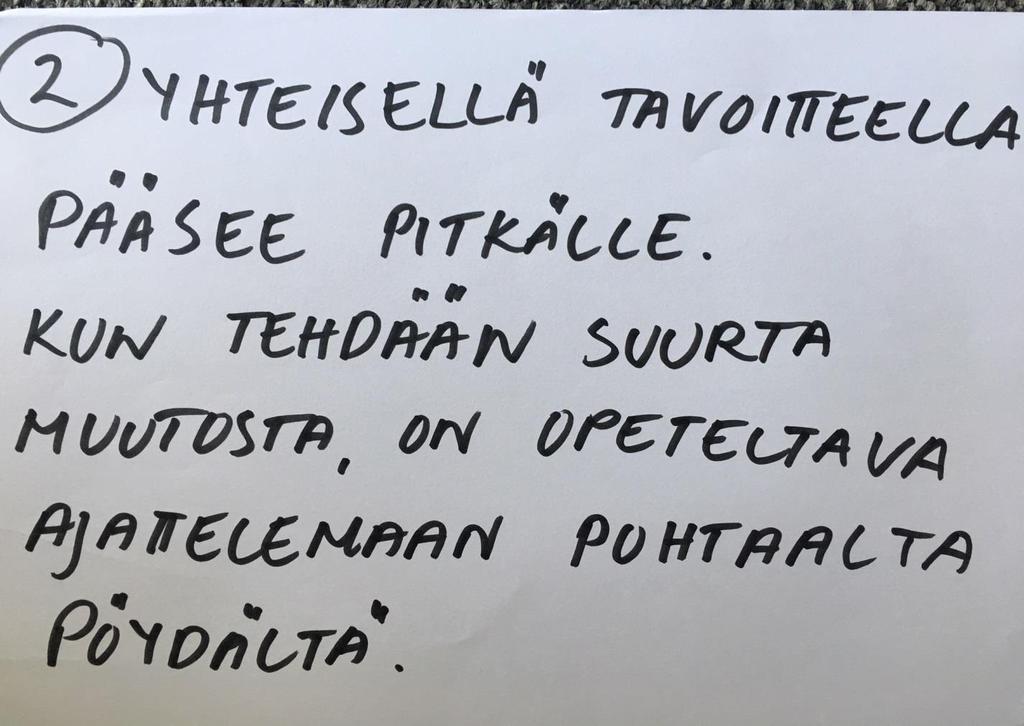 2 YHTEISELLÄ TAVOITTEELLA
PÄÄSEE PITKÄLLE.
KUN TEHDÄÄN SUURTA
MUUTOSTA, ON OPETELTAVA
AJATTELEMAAN PUHTAALTA
PÖYDÄLTÄ.